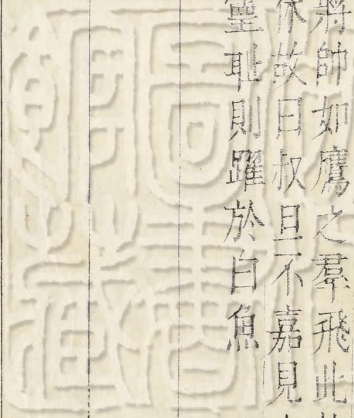 將帥如鷹之羣飛此
休故曰叔旦不嘉見
罍耻則躍於白魚